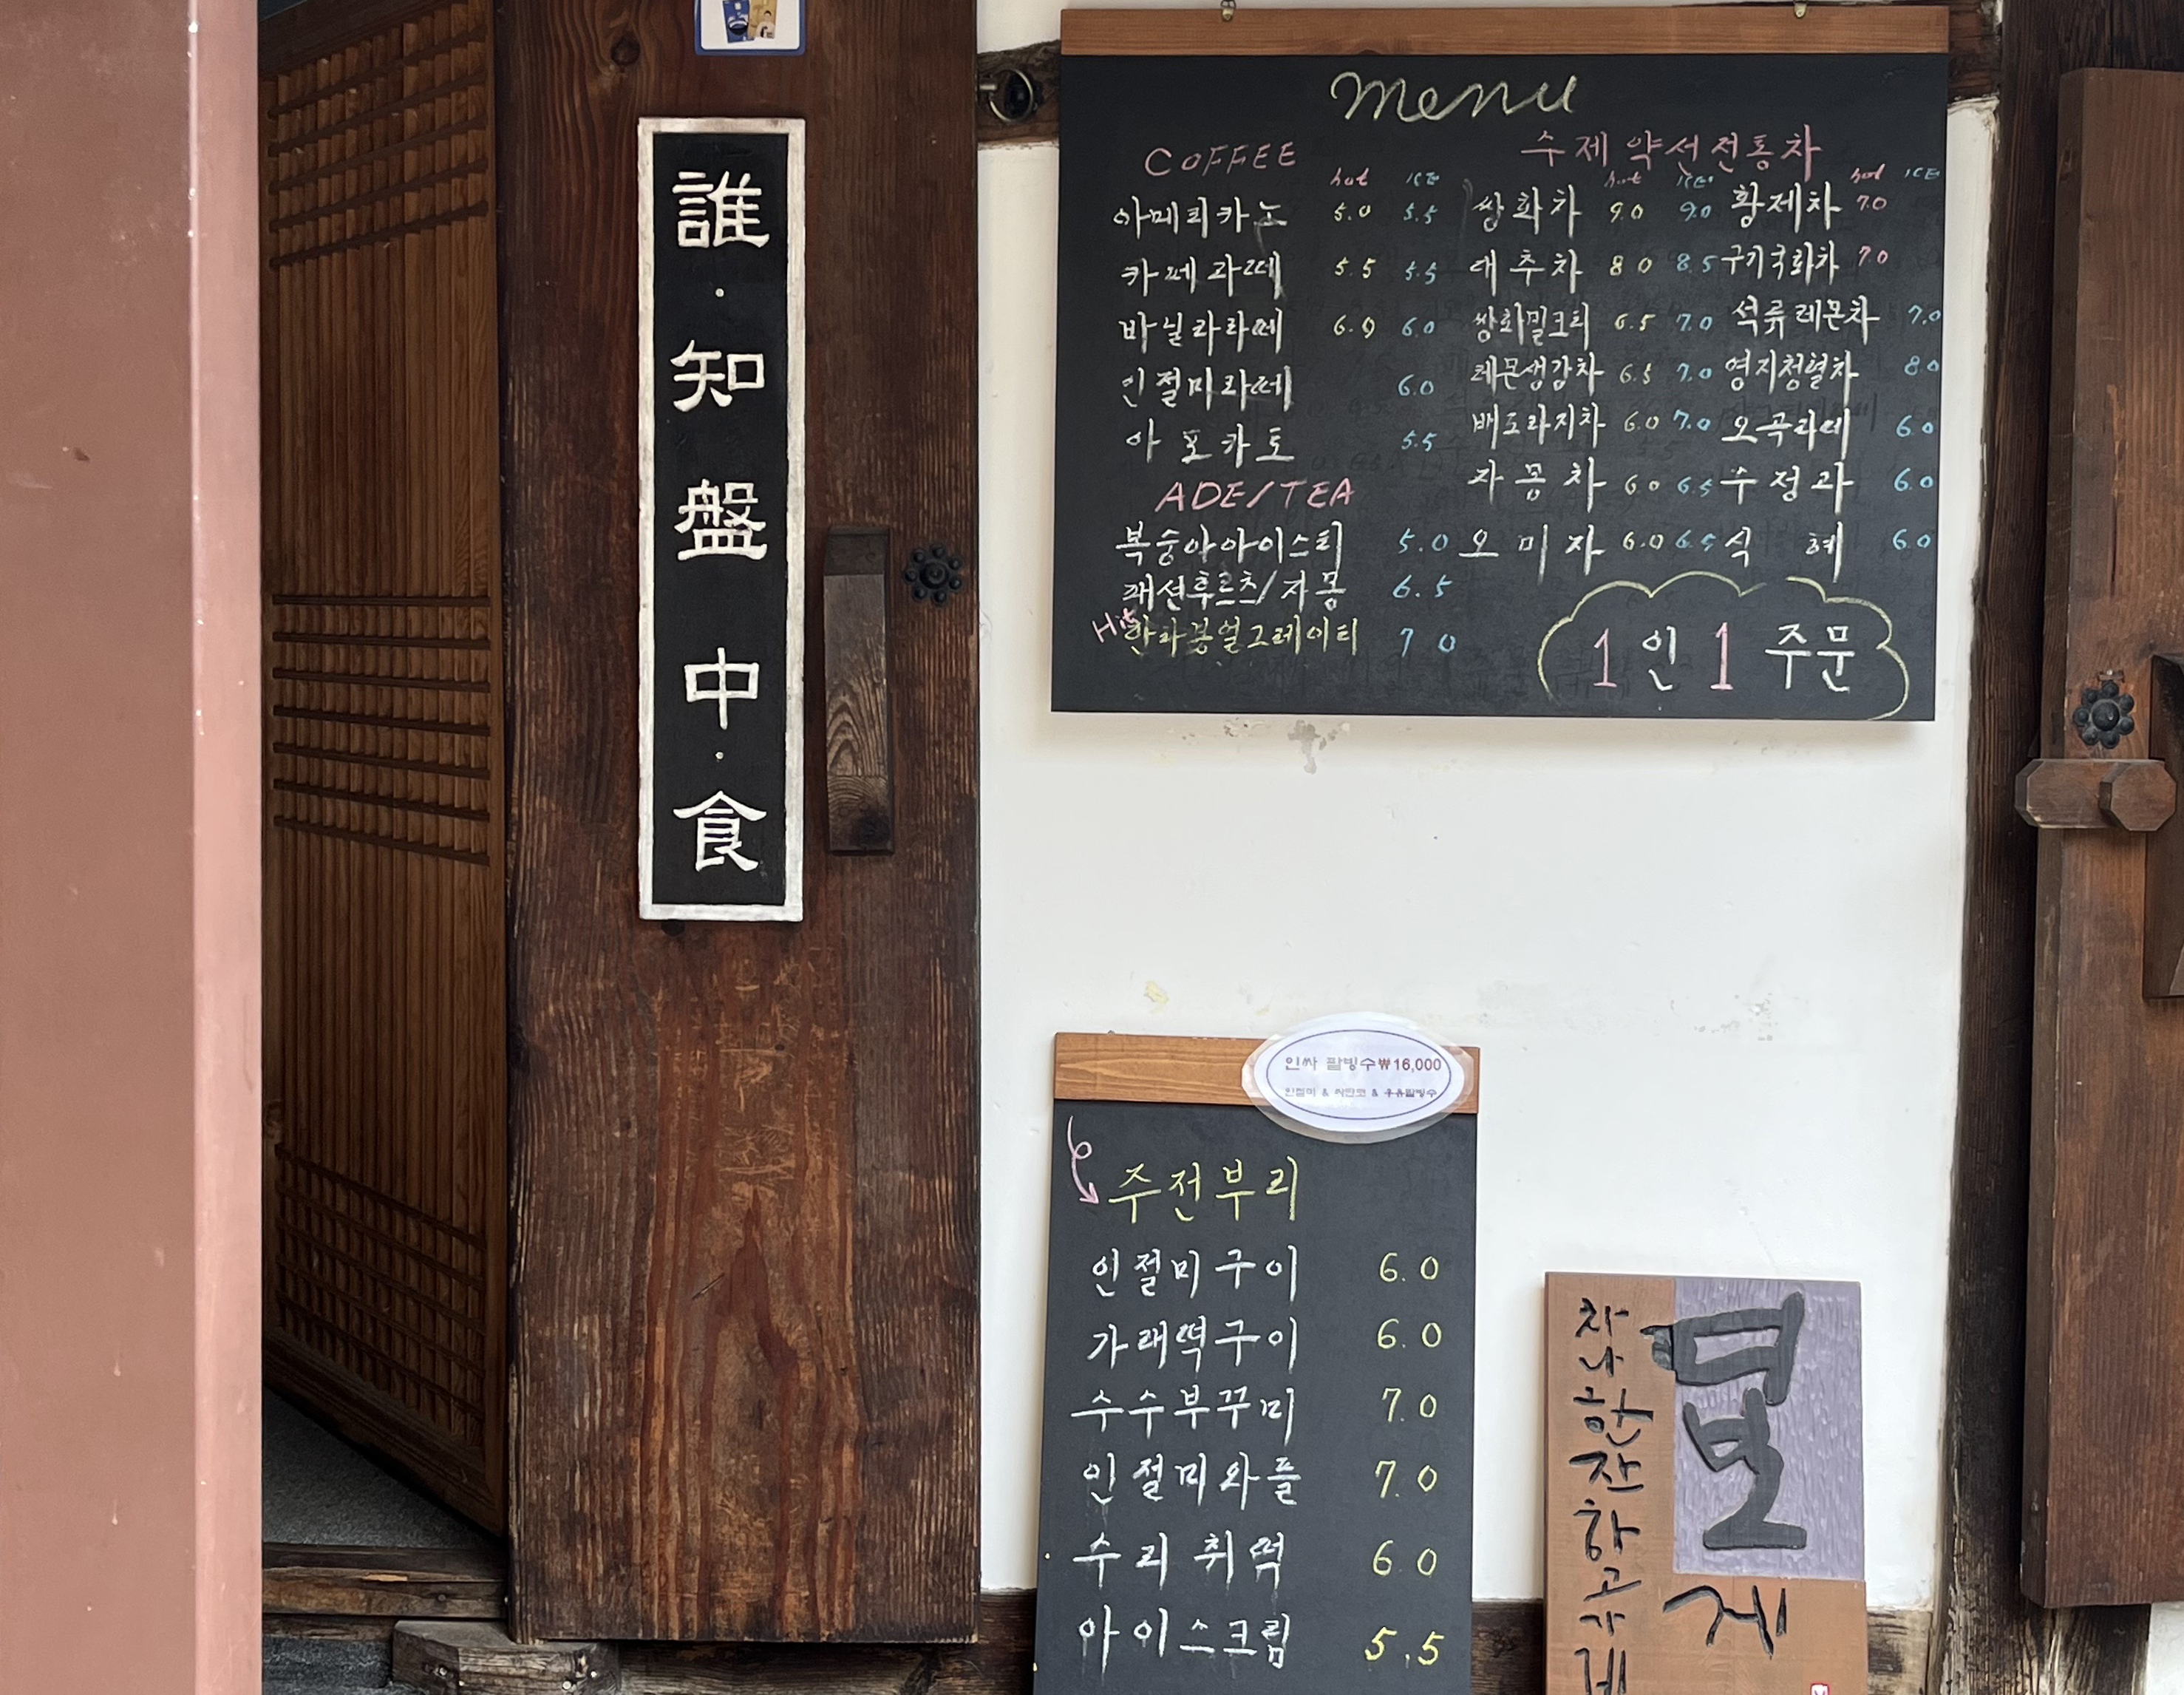 誰·知盤中·食
menu
COFFEE
hot ICE
아메리카노 5.0 5.5
카페라떼 5.5 5.5
바닐라라떼 6.0 6.0
인절미라떼 6.0
아포카토 5.5
ADE/TEA
복숭아아이스티 5.0
패션후르츠/자몽 6.5
Hit 한라봉얼그레이티 7.0
수제약선전통차
hot ICE
쌍화차 9.0 9.0
대추차 8.0 8.5
쌍화밀크티 6.5 7.0
레몬생강차 6.5 7.0
배도라지차 6.0 7.0
자몽차 6.0 6.5
오미자 6.0 6.5
hot ICE
황제차 7.0
구기국화차 7.0
석류레몬차 7.0
영지청혈차 8.0
오곡라떼 6.0
수정과 6.0
식혜 6.0
1인 1 주문
인싸 팥빙수₩16,000
인절미 & 싸만코 & 우유팥빙수
주전부리
인절미구이 6.0
가래떡구이 6.0
수수부꾸미 7.0
인절미와플 7.0
수리취떡 6.0
아이스크림 5.5
차나한잔하고가게